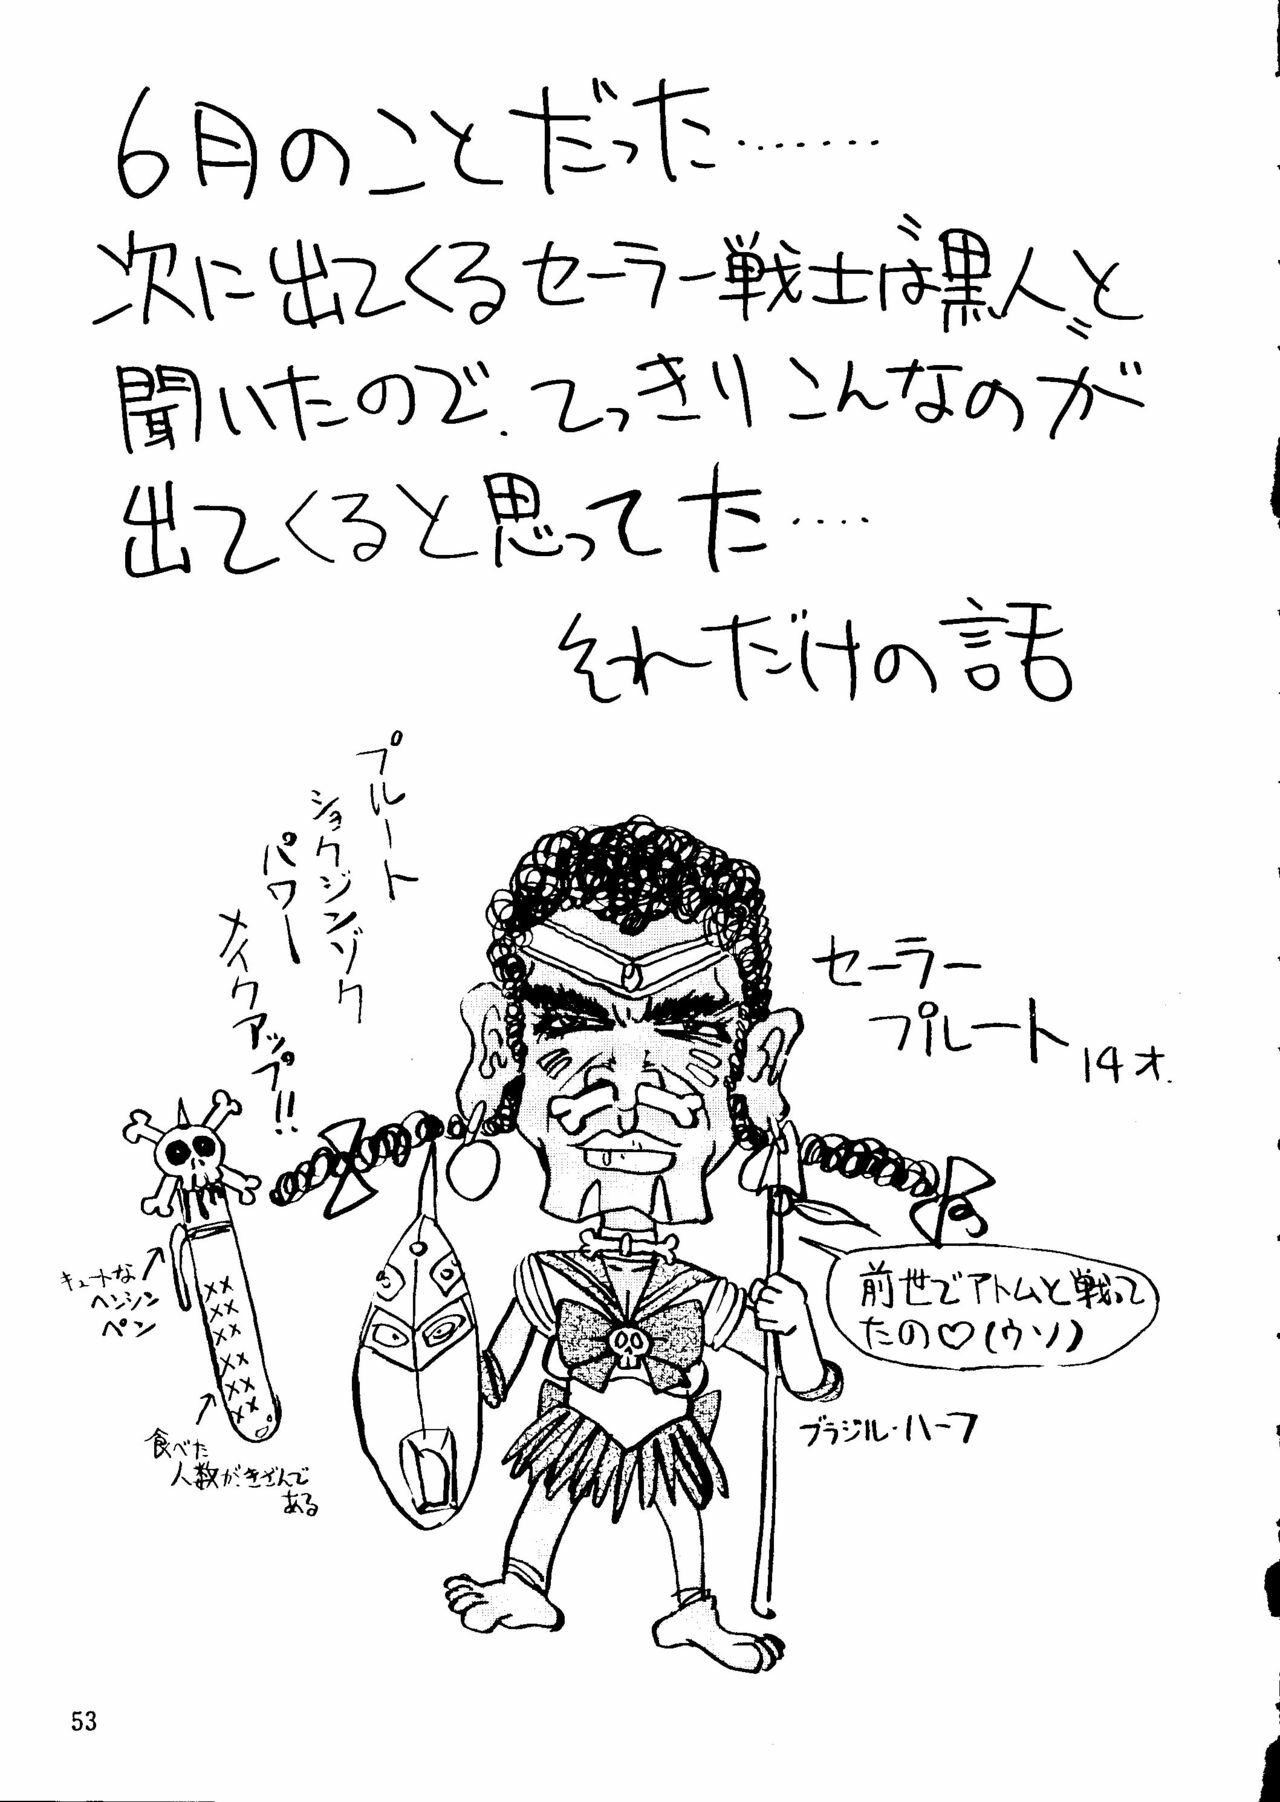 6月のことだった・・・・・・・
次に出てくるセーラー戦士は〝黒人〟と
聞いたので、てっきりこんなのが
出てくると思ってた・・・・
それだけの話
プルート
ショクジンゾク
パワー
メイクアップ!!
セーラー
プルート 14才.
キュートな
ヘンシン
ペン
食べた
人数がきざんで
ある
××
××
××
××
××
××
前世でアトムと戦って
たの♡(ウソ)
ブラジル・ハーフ
53